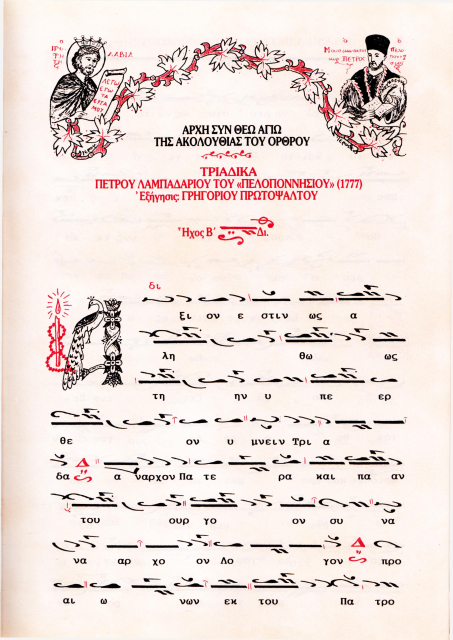 ΔΑΒΙΔ
ΛΕΓΩ
ΕΓΩ
ΤΑ
ΕΡΓΑ
ΜΟΥ
ΠΕΤΡΟΣ
ΑΡΧΗ ΣΥΝ ΘΕΩ ΑΓΙΩ
ΤΗΣ ΑΚΟΛΟΥΘΙΑΣ ΤΟΥ ΟΡΘΡΟΥ
ΤΡΙΑΔΙΚΑ
ΠΕΤΡΟΥ ΛΑΜΠΑΔΑΡΙΟΥ ΤΟΥ «ΠΕΛΟΠΟΝΝΗΣΙΟΥ» (1777)
Ἐξήγησις: ΓΡΗΓΟΡΙΟΥ ΠΡΩΤΟΨΑΛΤΟΥ
Ἦχος Β΄ Δι.
δι
Α ξι ον ε στιν ως α
λη θω ως
τη ην υ πε ερ
θε ον υ μνειν Τρι α
δα Δ α ναρχον Πα τε ρα και πα αν
του ουρ γο ον συ να
να αρ χο ον Λο γον Δ προ
αι ω νων εκ του Πα τρο